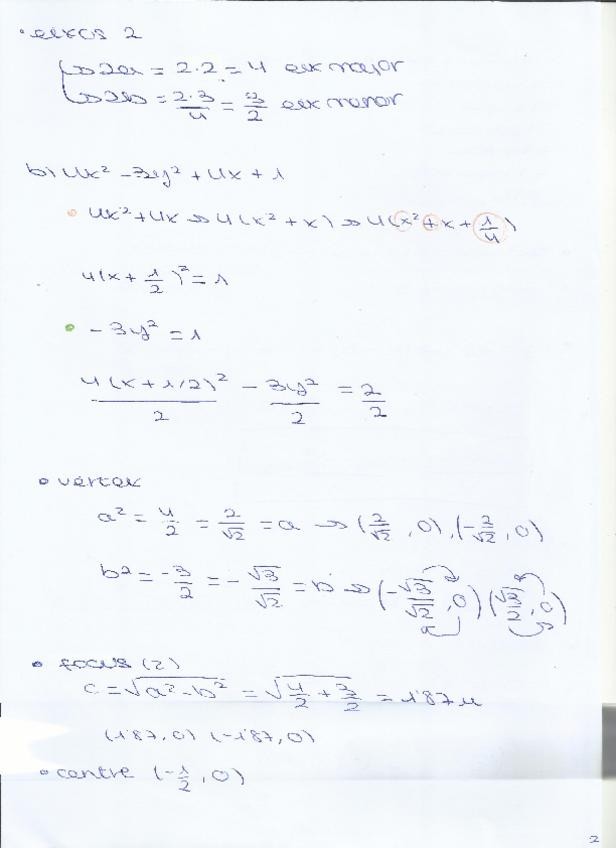 • eixos 2
↳ 2a = 2·2 = 4 eix major
↳ 2b = 2·3/4 = 3/2 eix menor
b) 4x² - 3y² + 4x + 1
• 4x² + 4x → 4(x² + x) → 4(x² + x + 1/4)
4(x + 1/2)² = 1
• - 3y² = 1
4(x + 1/2)²/2 - 3y²/2 = 2/2
• vertex
a² = 4/2 = 2/√2 = a → (2/√2, 0), (-2/√2, 0)
b² = -3/2 = -√3/√2 = b → (-√3/√2, 0) (√3/2, 0)
• focus (2)
c = √(a² - b²) = √(4/2 + 3/2) = 1'87 u
(1'87, 0) (-1'87, 0)
• centre (-1/2, 0)
2